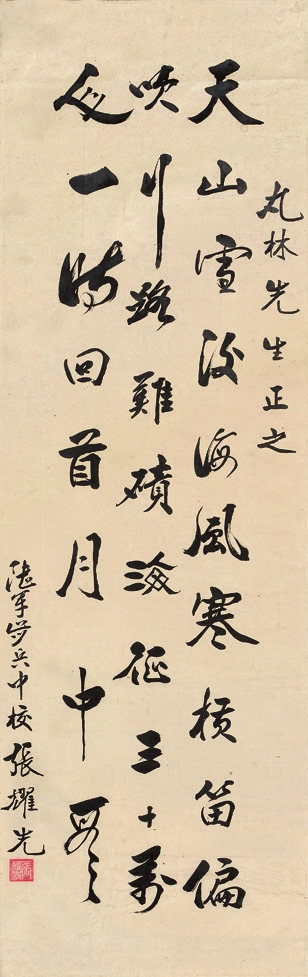 丸林先生正之
天山雪後海風寒橫笛偏
吹行路難磧海征三十萬
人一時回首月中看
陸軍步兵中校張耀光